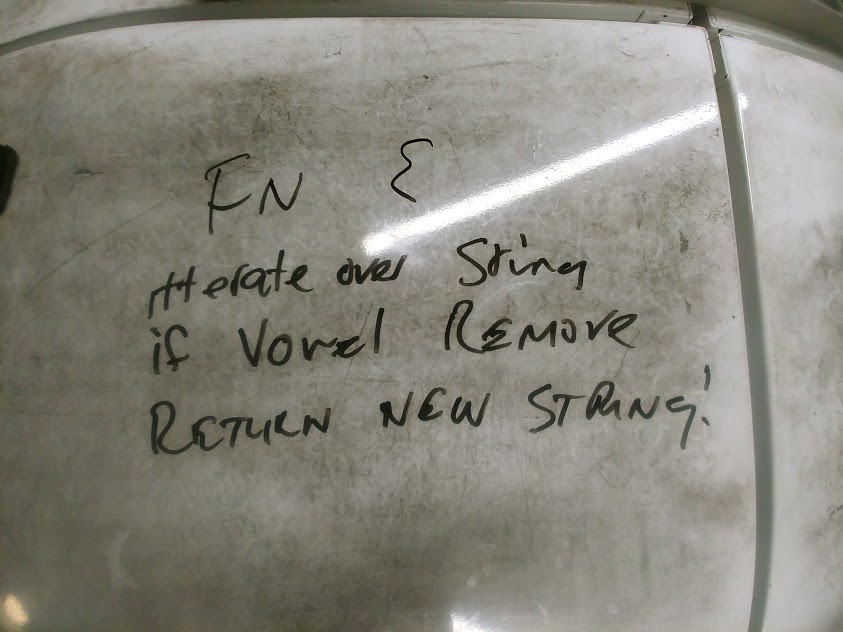 FN {
itterate over String
if Vowel REMOVE
RETURN NEW STRING!